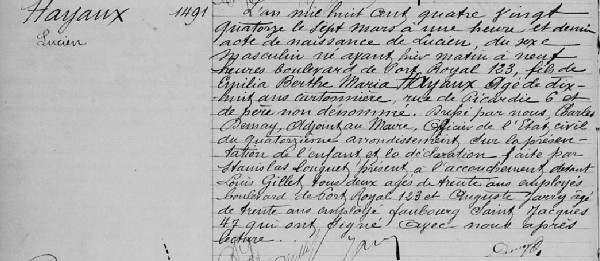 Hayaux
Lucien
1491
L'an mil huit cent quatre vingt
quatorze le sept mars à une heure et demie
acte de naissance de Lucien, du sexe
masculin né avant hier matin à neuf
heures boulevard de Port Royal 123, fils de
Emilia Berthe Maria Hayaux âgée de dix-
huit ans cartonnière, rue de Picardie 6 et
de père non dénommé. Dressé par nous, Charles
Adjoint au Maire, Officier de l'Etat civil
du quatorzième arrondissement sur la présen-
tation de l'enfant et la déclaration faite par
Stanislas Louquet présent à l'accouchement, devant
Louis Gillet tous deux agés de trente ans employés
boulevard de Port Royal 123 et Auguste Jarry agé
de trente ans employé faubourg Saint Jacques
47 qui ont signé avec nous après
lecture.